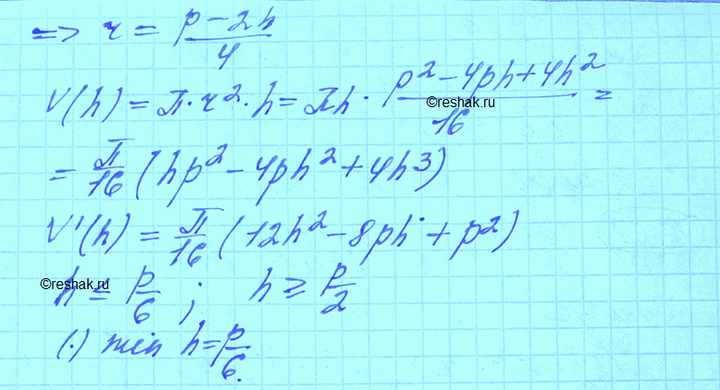 => r = (p - 2h)/4
V(h) = π·r²·h = πh · (p² - 4ph + 4h²)/16 =
©reshak.ru
= π/16 (hp² - 4ph² + 4h³)
V'(h) = π/16 (12h² - 8ph + p²)
©reshak.ru
h ≤ p/6 ; h ≥ p/2
(·) min h = p/6.